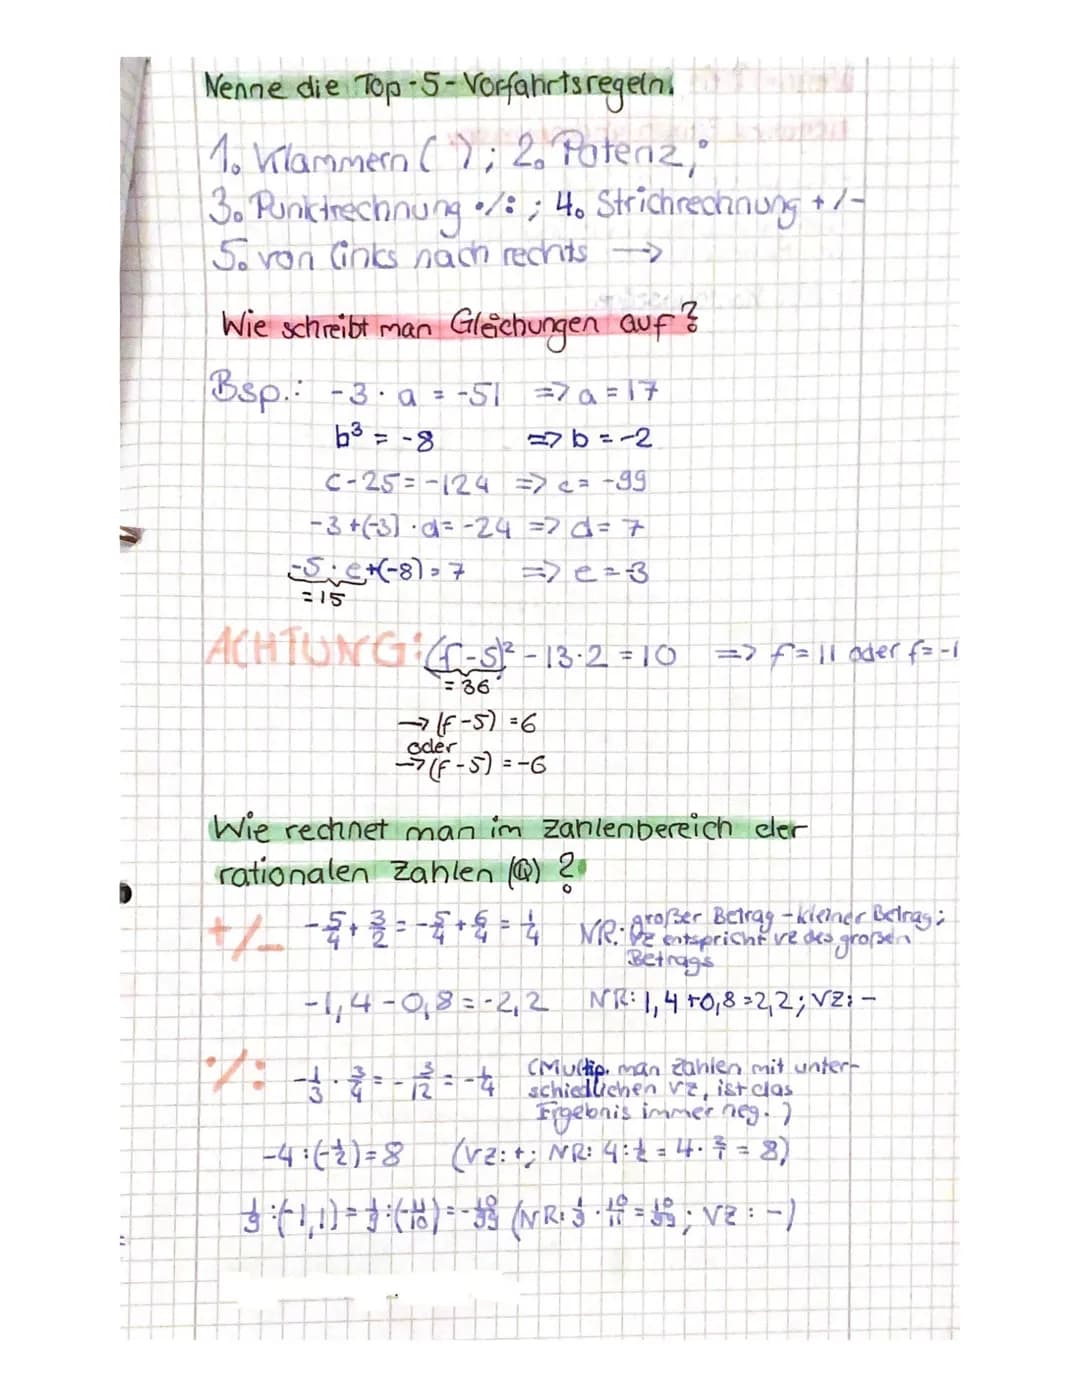 Nenne die Top-5-Vorfahrtsregeln.
1. Klammern ( ); 2. Potenz;
3. Punktrechnung ·/: ; 4. Strichrechnung +/-
5. von links nach rechts →
Wie schreibt man Gleichungen auf?
Bsp.: -3 · a = -51 => a = 17
b³ = -8 => b = -2
c - 25 = -124 => c = -99
-3 + (-3) · d = -24 => d = 7
-5 · e + (-8) = 7 => e = -3
= 15
ACHTUNG: (f-5)² - 13 · 2 = 10 => f = 11 oder f = -1
= 36
→ (f-5) = 6
oder
→ (f-5) = -6
Wie rechnet man im Zahlenbereich der
rationalen Zahlen (Q) ?
+/- -5/4 + 3/2 = -5/4 + 6/4 = 1/4 NR: großer Betrag - kleiner Betrag;
VZ entspricht VZ des großen
Betrags
-1,4 - 0,8 = -2,2 NR: 1,4 + 0,8 = 2,2; VZ: -
·/: -1/3 · 3/4 = -3/12 = -1/4 (Multip. man Zahlen mit unter-
schiedlichen VZ, ist das
Ergebnis immer neg.)
-4 : (-1/2) = 8 (VZ: +; NR: 4 : 1/2 = 4 · 2/1 = 8)
1/9 : (-1,1) = 1/9 : (-11/10) = -10/99 (NR: 1/9 · 10/11 = 10/99; VZ: -)